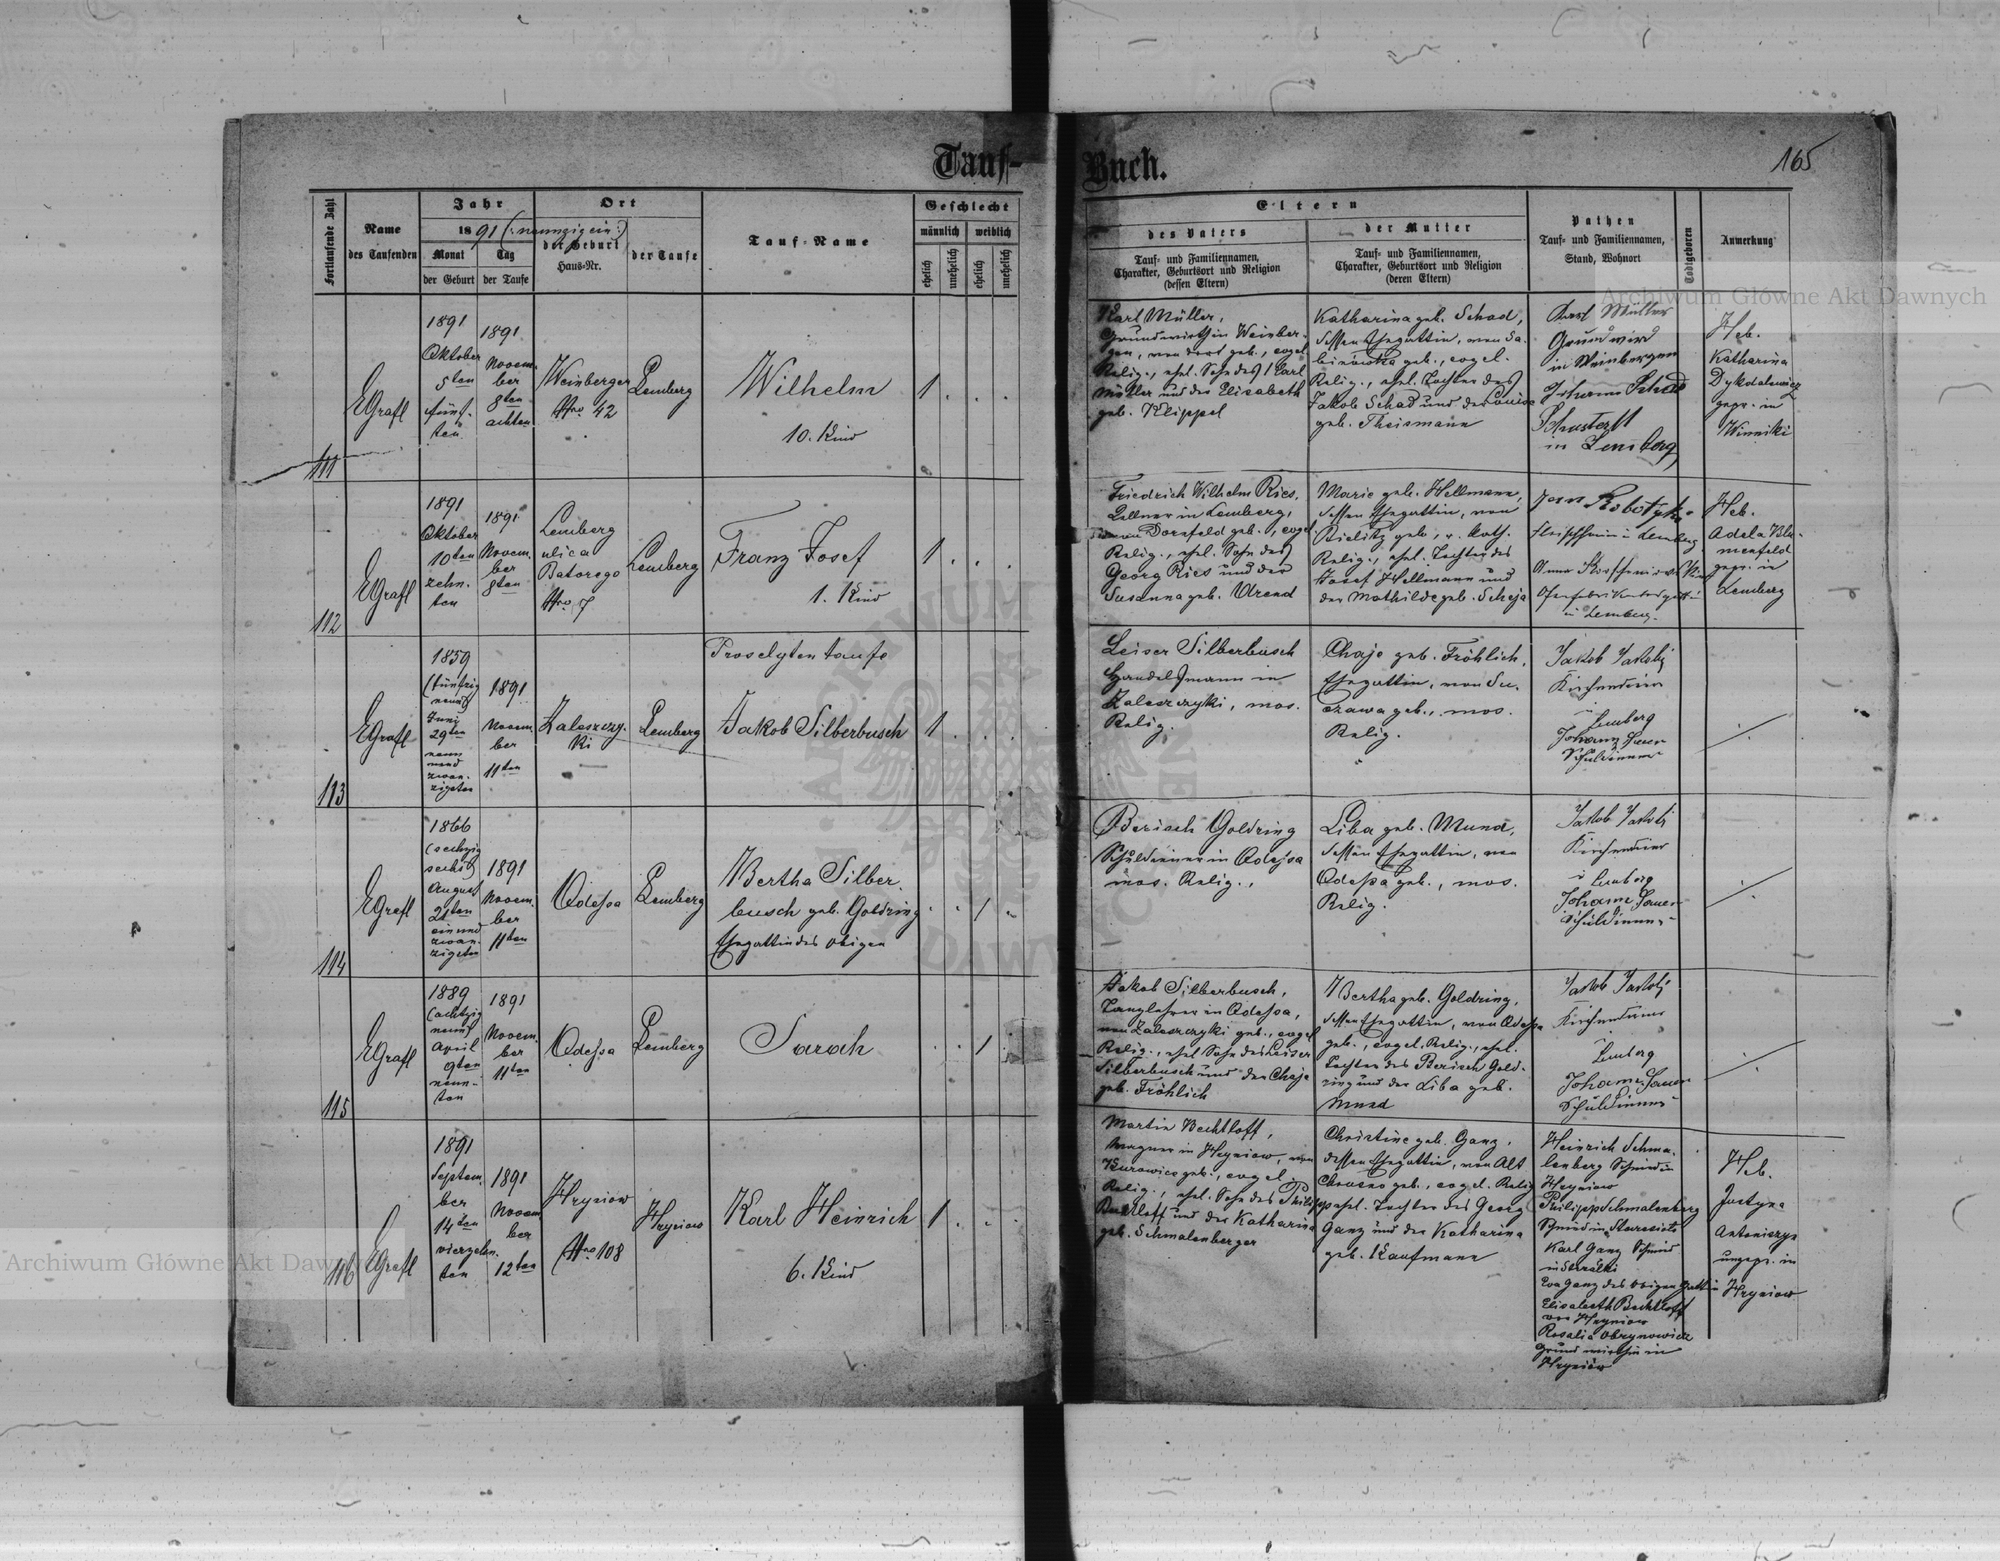 Tauf-
Buch.
165
Fortlaufende Zahl
Name
des Taufenden
Jahr
1891 (: neunzigein :)
Monat
der Geburt
Tag
der Taufe
Ort
der Geburt
Haus-Nr.
der Taufe
Tauf-Name
Geschlecht
männlich
weiblich
ehelich
unehelich
ehelich
unehelich
Eltern
des Vaters
Tauf- und Familiennamen,
Charakter, Geburtsort und Religion
(dessen Eltern)
der Mutter
Tauf- und Familiennamen,
Charakter, Geburtsort und Religion
(deren Eltern)
Pathen
Tauf- und Familiennamen,
Stand, Wohnort
Todtgeboren
Anmerkung
111
EGrafl
1891
Oktober
5ten
fünf-
ten
1891
Novem-
ber
8ten
achten
Weinbergen
Nro 42
Lemberg
Wilhelm
10. Kind
1
Karl Müller,
Grundwirth in Weinber-
gen, von dort geb., evgel.
Relig., ehel. Sohn des Karl
Müller und der Elisabeth
geb. Klippel
Katharina geb. Schad,
dessen Ehegattin, von
geb., evgel.
Relig., ehel. Tochter des
Jakob Schad und der Louise
geb. Theismann
Karl Müller
Grundwird
in Weinbergen
Johann Schad
in Lemberg
Heb.
Katharina
Dykdalewicz
gepr. in
Winniki
112
EGrafl
1891
Oktober
10ten
zehn-
ten
1891
Novem-
ber
8ten
Lemberg
ulica
Batorego
Nro 7
Lemberg
Franz Josef
1. Kind
1
Friedrich Wilhelm Ries,
Kellner in Lemberg,
von Dornfeld geb., evgel.
Relig., ehel. Sohn des
Georg Ries und der
Susanna geb. Arend
Marie geb. Hellmann,
dessen Ehegattin, von
Bielitz geb., r. kath.
Relig., ehel. Tochter des
Josef Hellmann und
der Mathilde geb. Scheja
in Lemberg
Anna
in Lemberg.
Heb.
Adela Blu-
menfeld
gepr. in
Lemberg
113
EGrafl
1859
(fünfzig
neun)
Juni
29ten
neun
und
zwan-
zigsten
1891
Novem-
ber
11ten
Zaleszczy-
ki
Lemberg
Proselytentaufe
Jakob Silberbusch
1
Leiser Silberbusch
Handelsmann in
Zaleszczyki, mos.
Relig.
Chaje geb. Fröhlich,
Ehegattin, von Su-
czawa geb., mos.
Relig.
Jakob Jakobi
Kirchendiener
Lemberg
Johann Sauer
Schuldiener
114
EGrafl
1866
(sechzig
sechs)
August
21ten
ein und
zwan-
zigsten
1891
Novem-
ber
11ten
Odessa
Lemberg
Bertha Silber-
busch geb. Goldring
Ehegattin des Obigen
1
Berisch Goldring
Schuldiener in Odessa
mos. Relig.,
Liba geb. Mund,
dessen Ehegattin, von
Odessa geb., mos.
Relig.
Jakob Jakobi
Kirchendiener
Lemberg
Johann Sauer
Schuldiener
115
EGrafl
1889
(achtzig
neun)
April
9ten
neun-
ten
1891
Novem-
ber
11ten
Odessa
Lemberg
Sarah
1
Jakob Silberbusch,
Tanzlehrer in Odessa,
von Zaleszczyki geb., evgel.
Relig., ehel. Sohn des Leiser
Silberbusch und der Chaje
geb. Fröhlich
Bertha geb. Goldring,
dessen Ehegattin, von Odessa
geb., evgel. Relig., ehel.
Tochter des Berisch Gold-
ring und der Liba geb.
Mund
Jakob Jakobi
Kirchendiener
Lemberg
Johann Sauer
Schuldiener
116
EGrafl
1891
Septem-
ber
14ten
vierzehn-
ten
1891
Novem-
ber
12ten
Hryniow
Nro 108
Hryniow
Karl Heinrich
6. Kind
1
Martin Bechtloff,
Wagner in Hryniow, von
Kurowice geb., evgel.
Relig., ehel. Sohn des Philipp
Bechtloff und der Katharina
geb. Schmalenberger
Christine geb. Ganz,
dessen Ehegattin, von Alt
Chrusno geb., evgel. Relig.
ehel. Tochter des Georg
Ganz und der Katharina
geb. Kaufmann
Heinrich Schma-
lenberg Schmied in
Hryniow
Philipp Schmalenberg
Schmied in
Karl Ganz Schmied
in
Eva Ganz des Obigen Gattin
Elisabeth Bechtloff
von Hryniow
Rosalia Obrynowicz
Grundwirthin in
Hryniów
Heb.
Justyna
ungepr. in
Hryniow
Archiwum Główne Akt Dawnych
Archiwum Główne Akt Dawnych